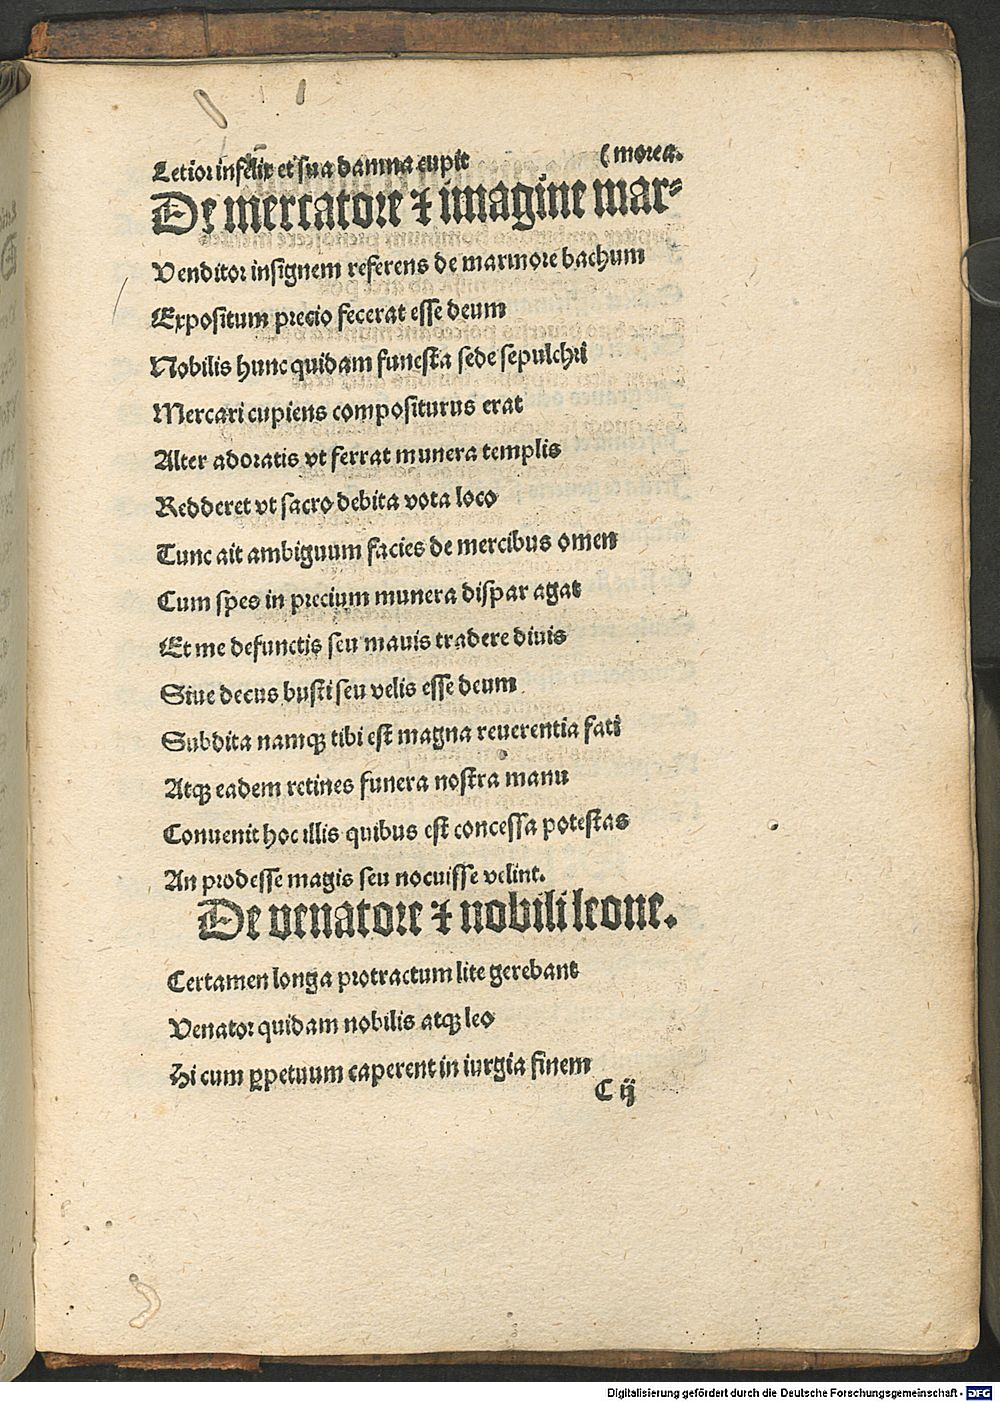 Letior infelix et sua damna cupit (morea.
De mercatore ⁊ imagine mar-
Venditor insignem referens de marmore bachum
Expositum precio fecerat esse deum
Nobilis hunc quidam funesta sede sepulchri
Mercari cupiens compositurus erat
Alter adoratis vt ferrat munera templis
Redderet vt sacro debita vota loco
Tunc ait ambiguum facies de mercibus omen
Cum spes in precium munera dispar agat
Et me defunctis seu mauis tradere diuis
Siue decus busti seu velis esse deum
Subdita namqꝫ tibi est magna reuerentia fati
Atqꝫ eadem retines funera nostra manu
Conuenit hoc illis quibus est concessa potestas
An prodesse magis seu nocuisse velint.
De venatore ⁊ nobili leone.
Certamen longa protractum lite gerebant
Venator quidam nobilis atqꝫ leo
Hi cum ꝑpetuum caperent in iurgia finem
C ij
Digitalisierung gefördert durch die Deutsche Forschungsgemeinschaft - DFG